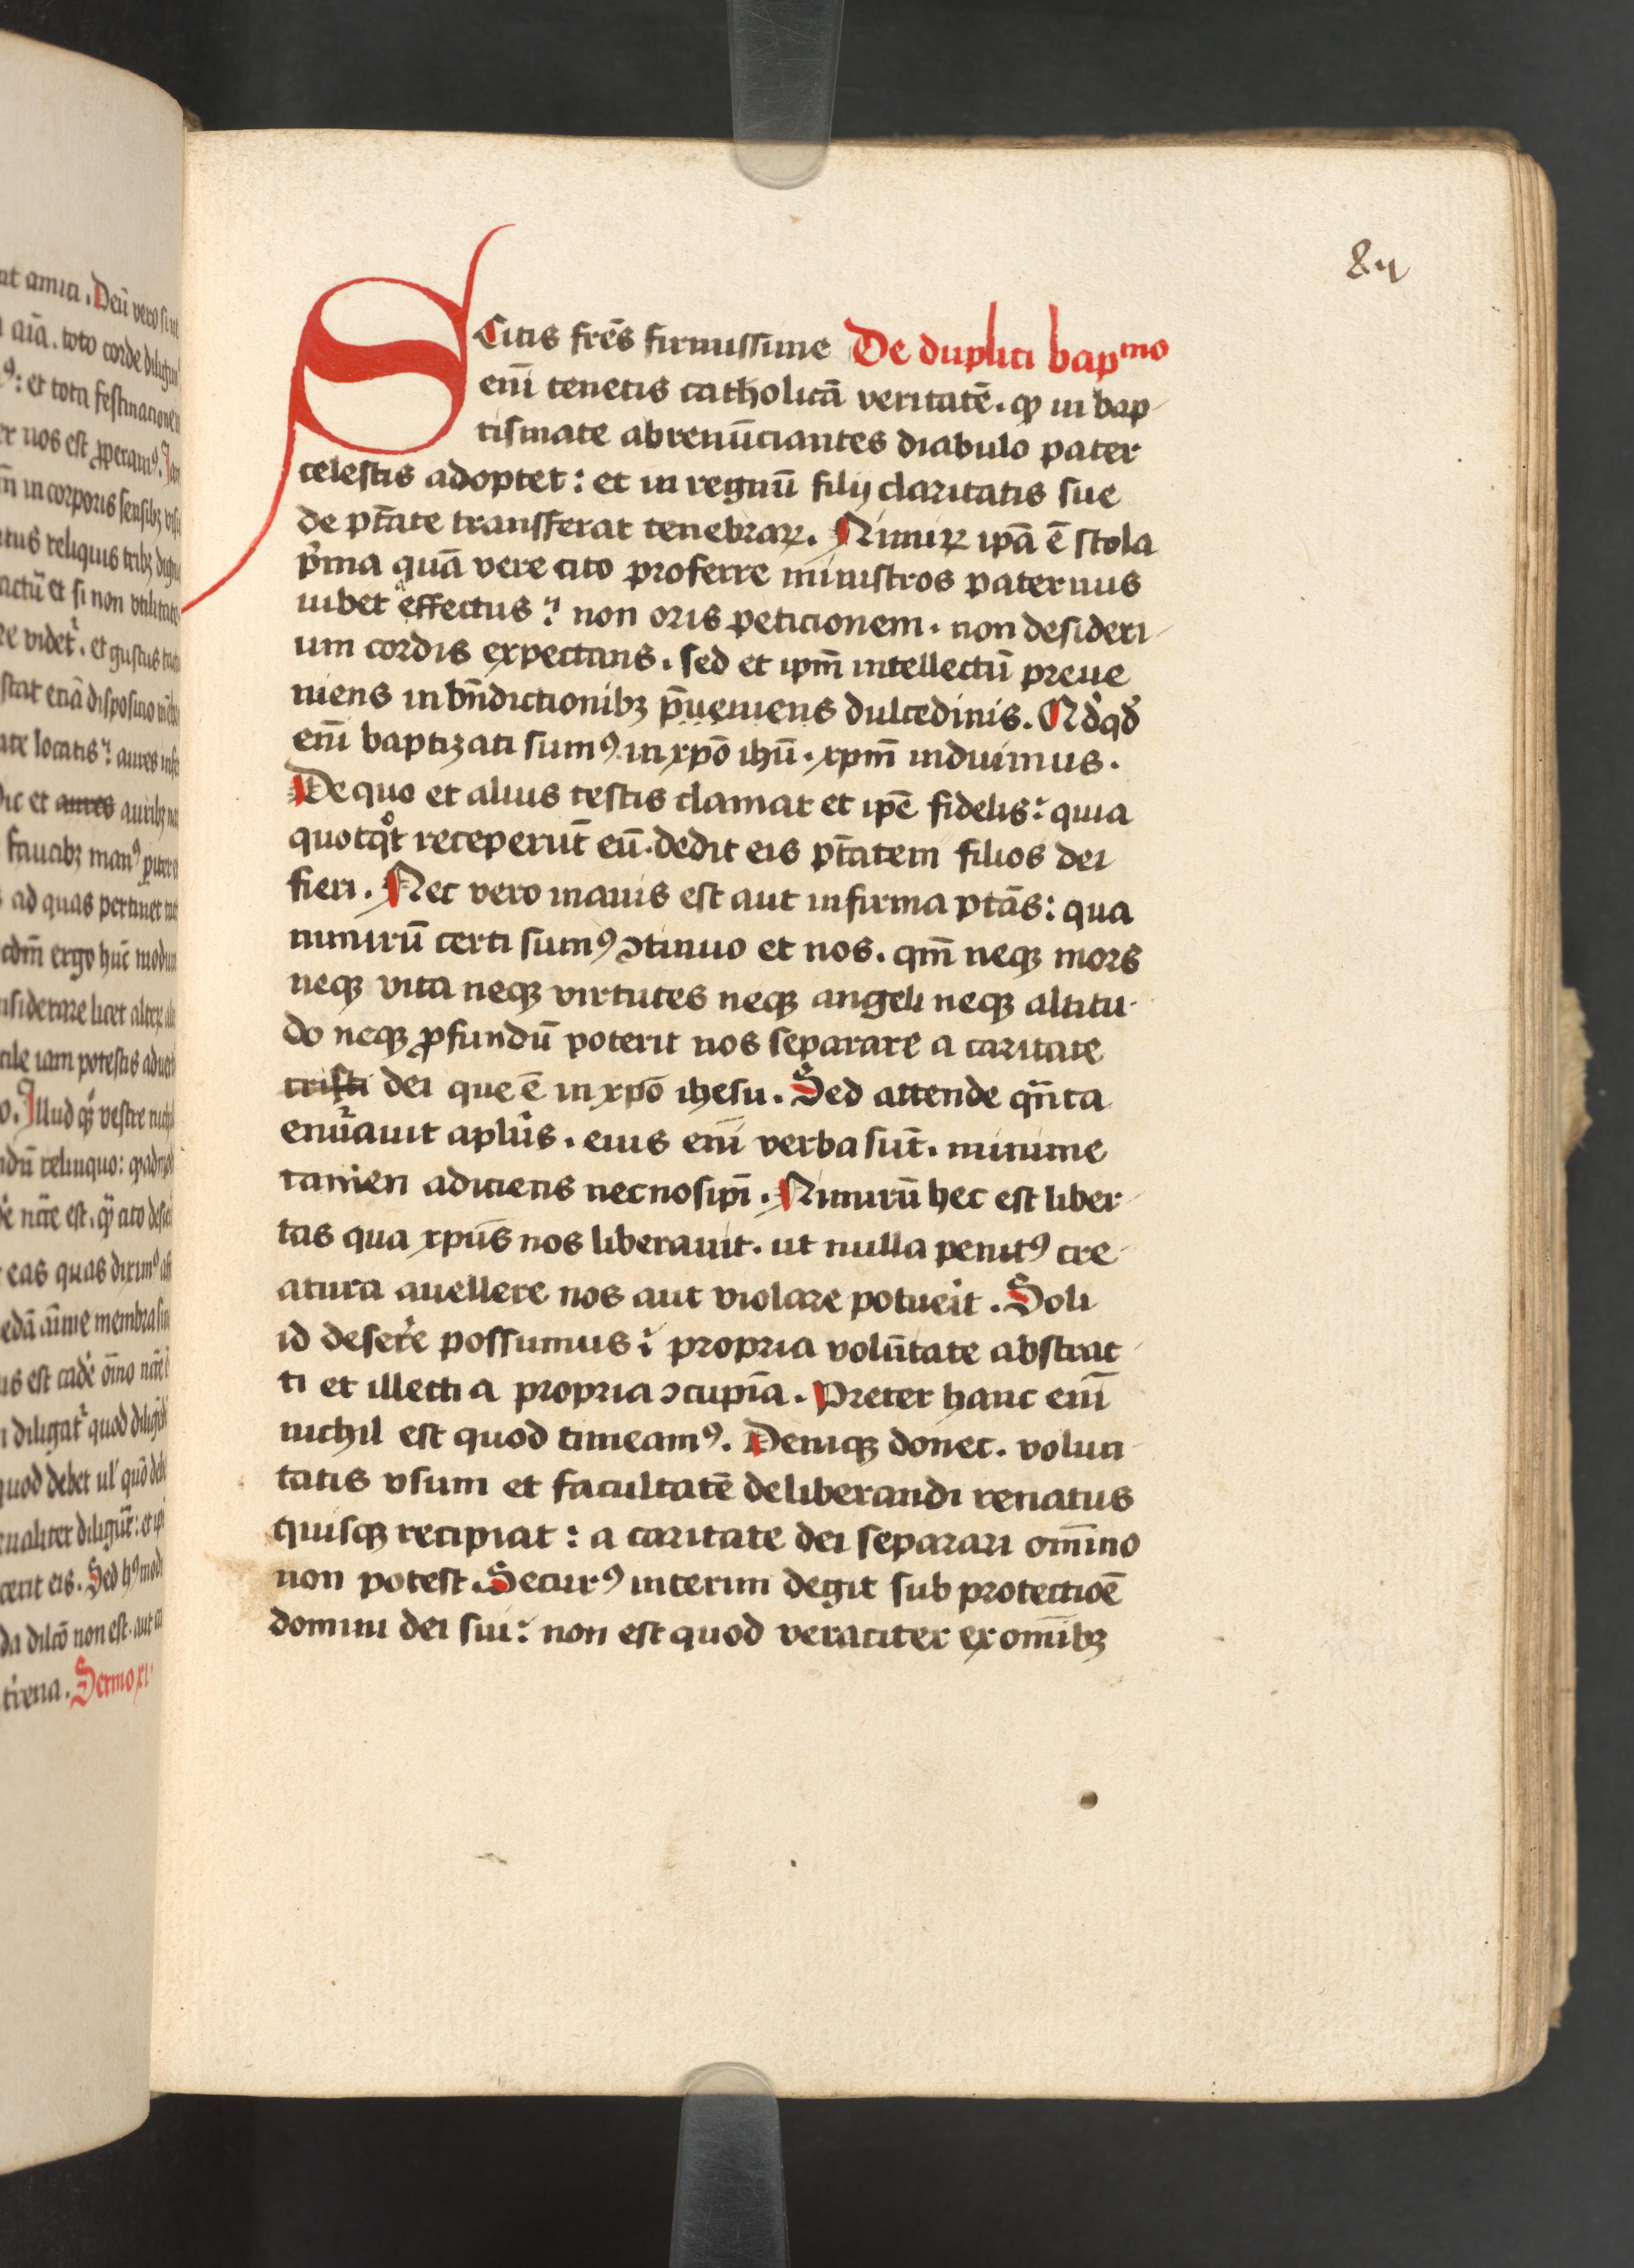 nt amici. Deū vero si ut
aīa. toto corde diligim᷒
᷒: et tota festinacione
nos est ꝓperam᷒. Iam
in corporis sensibꝫ
reliquis tribꝫ
et si non utilitate
videt᷑. et gustus
etiā disposicio
locatis: aures
et aures auribꝫ
fauabꝫ man᷒
ad quas pertinet
ergo hūc modum
licet
iam potestis
Illud qꝫ vestre
relinquo:
est. ꝙ
eas quas dixim᷒
aīme membra
est cadē oīno
diligat᷑ quod
quod debet ul̓
diligūt: et
eis. Sed h᷒
dilc̄o non est. aut
Sermo xi
84
SCitis fr̄es firmissime De duplici bapᵐᵒ
em̄ tenetis catholicā veritatē. ꝙ in bap
tismate abrenūciantes diabulo pater
celestis adoptet: et in regnū filij claritatis sue
de ptāte transferat tenebraꝝ. Nimiꝝ ip̄a ē stola
p̄ma quā vere cito proferre ministros paternus
iubet effectus: non oris peticionem. non desideri
um cordis expectans. sed et ip̄m intellectū preue
niens in bn̄dictionibꝫ p̄ueniens dulcedinis. Nd̓qd̓
em̄ baptizati sum᷒ in xpō ihū. xpm̄ induimus.
De quo et alius testis clamat et ip̄e fidelis: quia
quotqͦt receperūt eū. dedit eis ptātem filios dei
fieri. Nec vero inanis est aut infirma ptās: qua
nimirū certi sum᷒ ↄtinuo et nos. qm̄ neqꝫ mors
neqꝫ vita neqꝫ virtutes neqꝫ angeli neqꝫ altitu
do neqꝫ ꝓfundū poterit nos separare a caritate
cristi dei que ē in xpō ihesu. Sed attende qn̄ta
enu᷑auit apl̄us. eius em̄ verba sūt. minime
tamen adiciens nec nosip̄i. Nimirū hec est liber
tas qua xpūs nos liberauit. ut nulla penit᷒ cre
atura auellere nos aut violare potue᷑it. Soli
id dese᷑re possumus: propria volūtate abstrac
ti et illecti a propria ↄcupīa. Preter hanc em̄
nichil est quod timeam᷒. Deniqꝫ donec. volun
tatis vsum et facultatē deliberandi renatus
quisqꝫ recipiat: a caritate dei separari om̄ino
non potest. Secur᷒ interim degit sub protectioē
domini dei sui: non est quod veraciter ex om̄ibꝫ